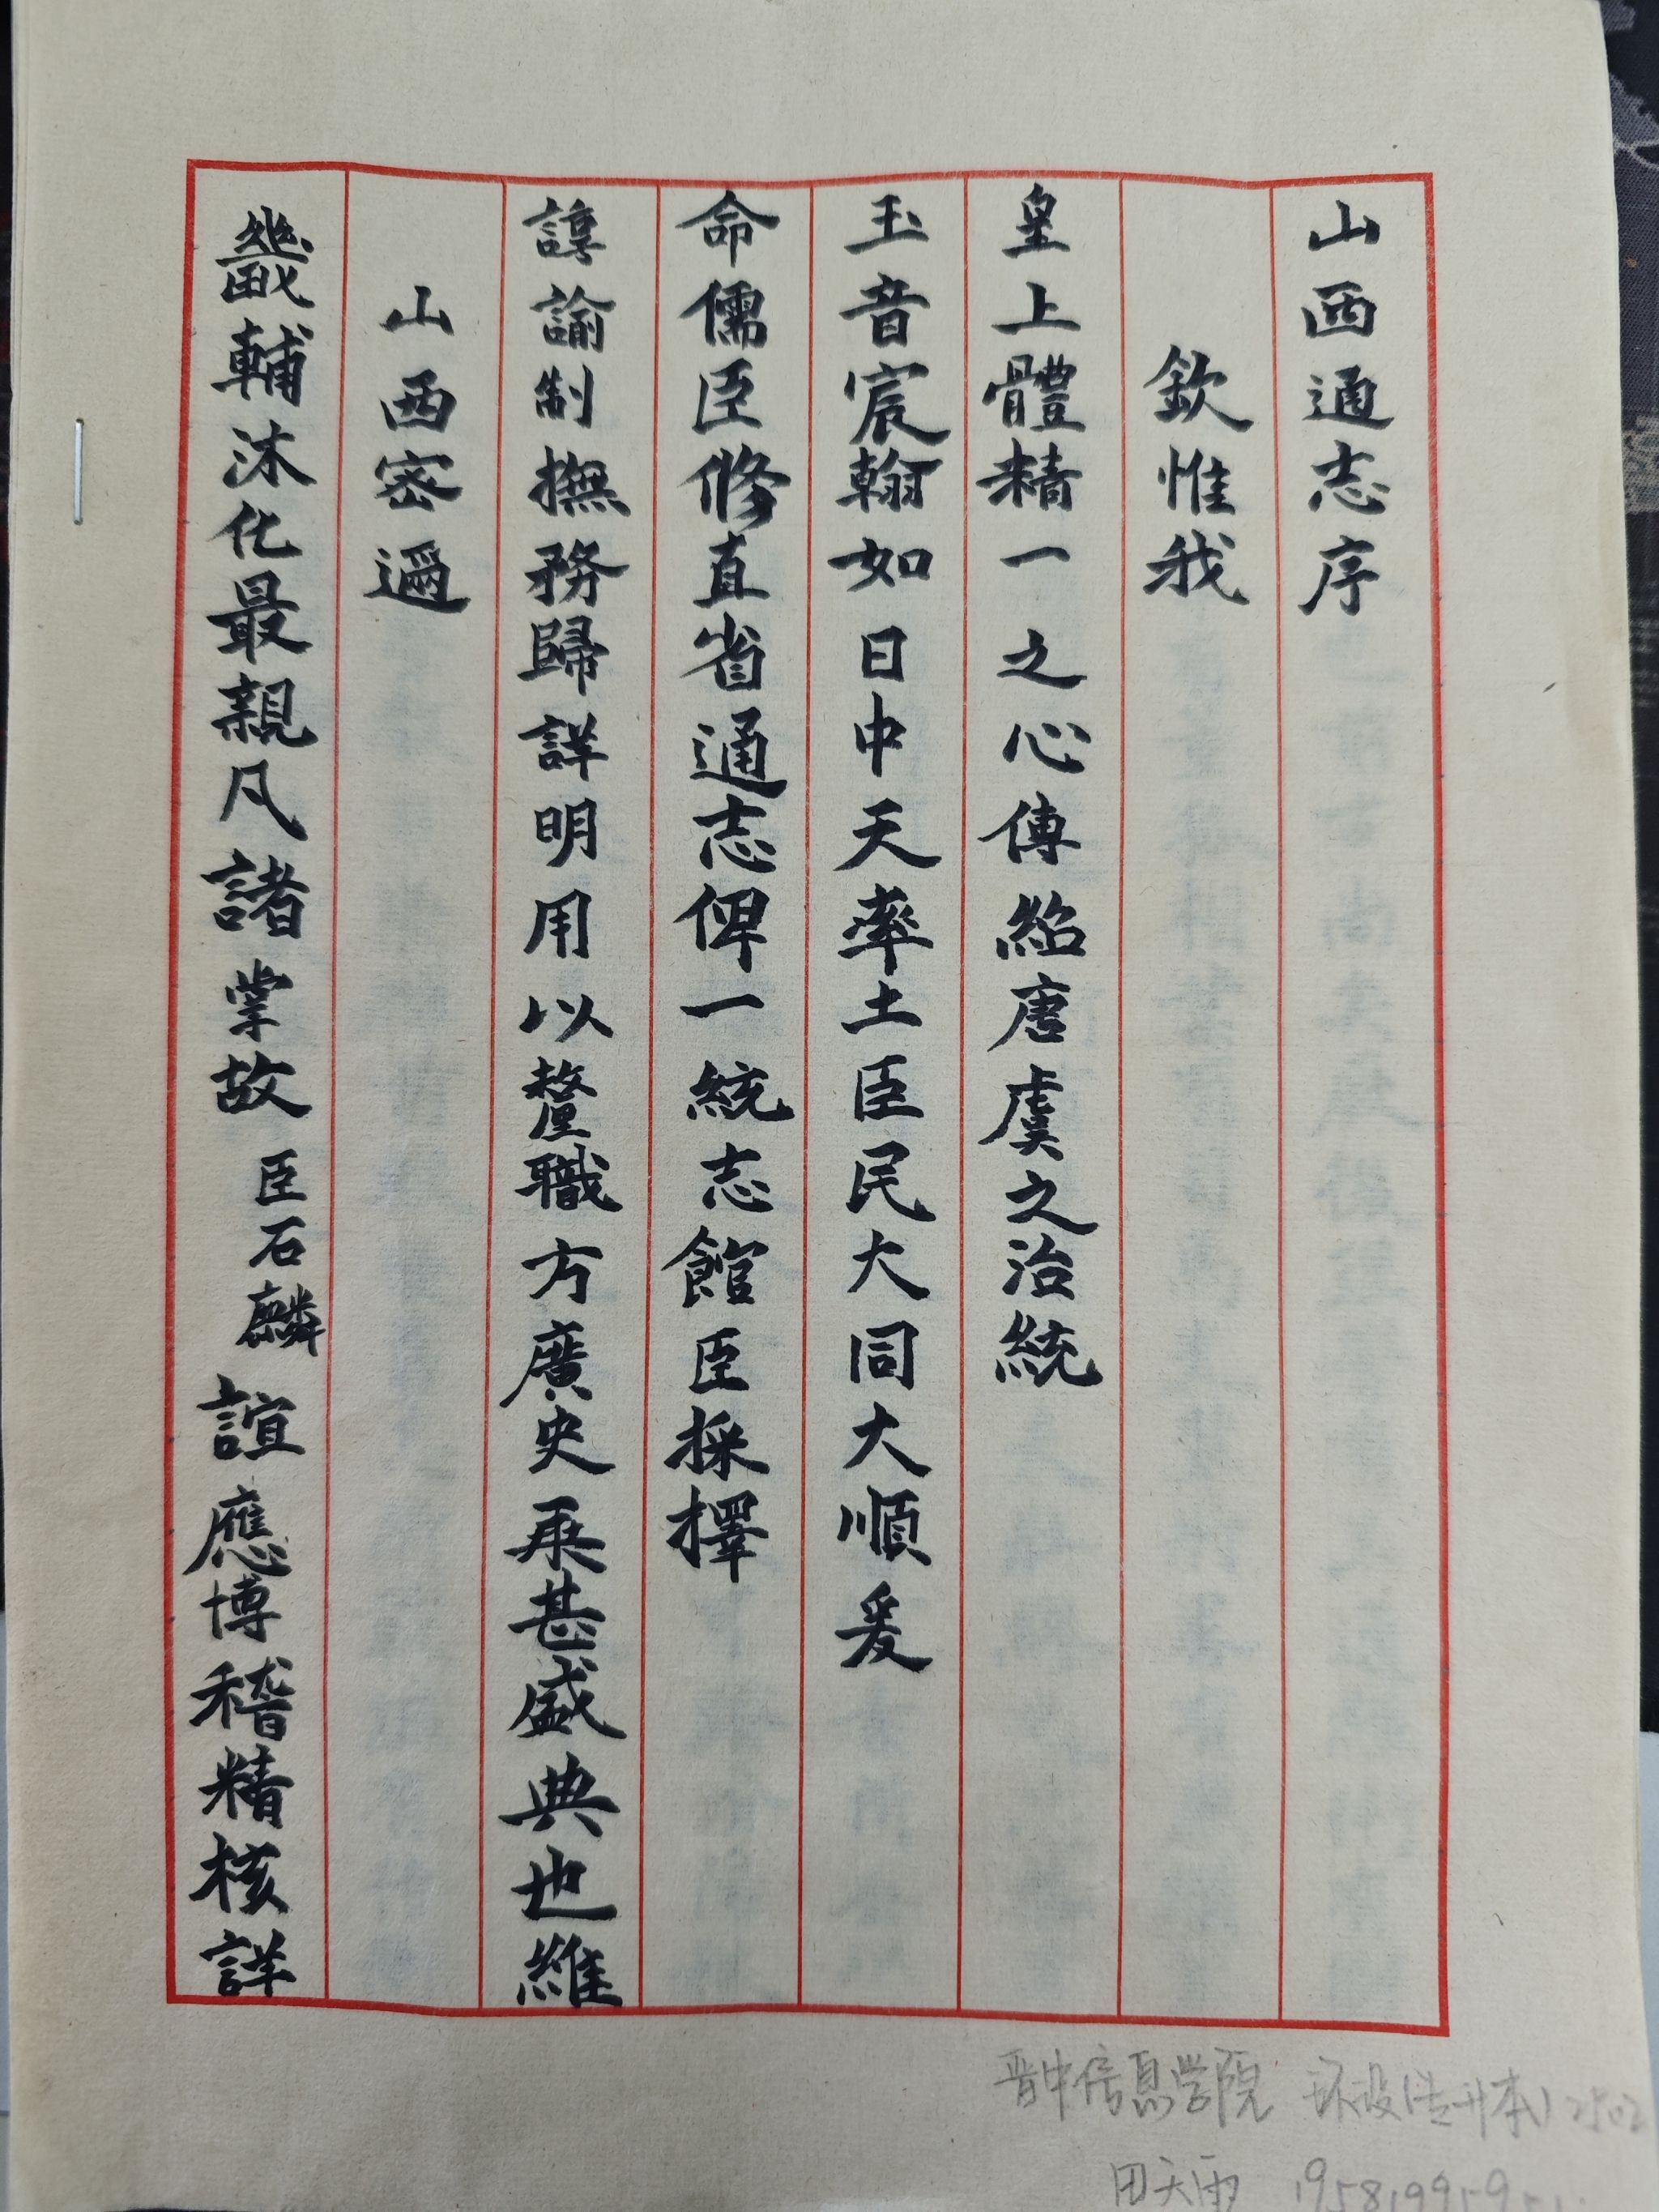 山西通志序
欽惟我
皇上體精一之心傳紹唐虞之治統
玉音宸翰如日中天率土臣民大同大順爰
命儒臣修直省通志俾一統志館臣採擇
諄諭制撫務歸詳明用以釐職方廣史乘甚盛典也維
山西密邇
畿輔沐化最親凡諸掌故臣石麟誼應博稽精核詳
晋中信息学院 环设(专升本)2502
田天雨